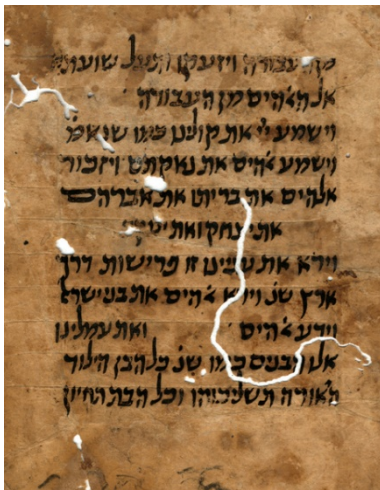 מן העבודה ויזעקו ותעל שועתם
אל האלהים מן העבודה
וישמע יי את קולינו כמו שנאמ
וישמע אלהים את נאקתם ויזכור
אלהים את בריתו את אברהם
את יצחק ואת
וירא את ענינו זו פרישות דרך
ארץ שנ וירא אלהים את בני ישראל
וידע אלהים ואת עמלינו
אלו הבנים כמו שנ כל הבן הילוד
היאורה תשליכוהו וכל הבת תחיון